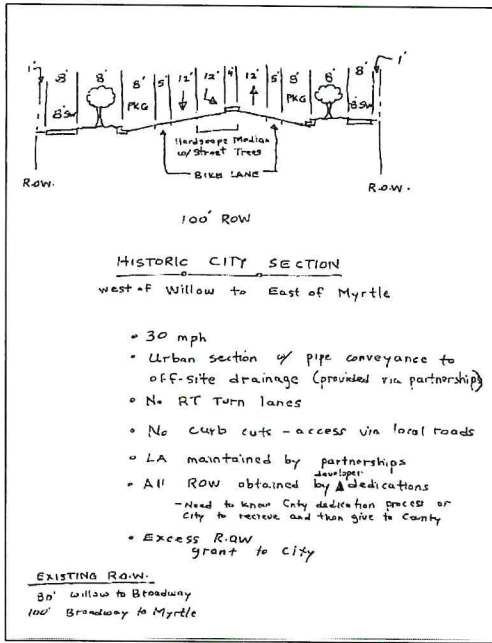 1' 8' 8' 8' 5' 12' 12' 4' 12' 5' 8' 8' 8' 1'
PKG PKG
8'SW 8'SW
Hardscape Median
w/Street Trees
BIKE LANE
R.O.W. R.O.W.
100' ROW
HISTORIC CITY SECTION
west of Willow to East of Myrtle
• 30 mph
• Urban section w/ pipe conveyance to
off-site drainage (provided via partnerships)
• No RT Turn lanes
• No curb cuts - access via local roads
• LA maintained by partnerships
developer
• All ROW obtained by dedications
- Need to know Cnty dedication process or
City to recieve and then give to County
• Excess R.O.W
grant to City
EXISTING R.O.W.
80' Willow to Broadway
100' Broadway to Myrtle